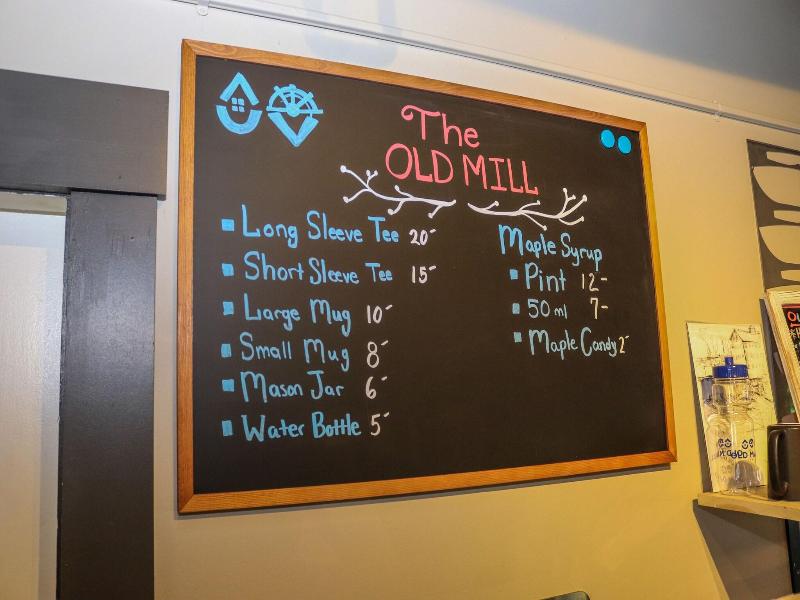 The
OLD MILL
Long Sleeve Tee 20-
Short Sleeve Tee 15-
Large Mug 10-
Small Mug 8-
Mason Jar 6-
Water Bottle 5-
Maple Syrup
Pint 12-
50 ml 7-
Maple Candy 2-